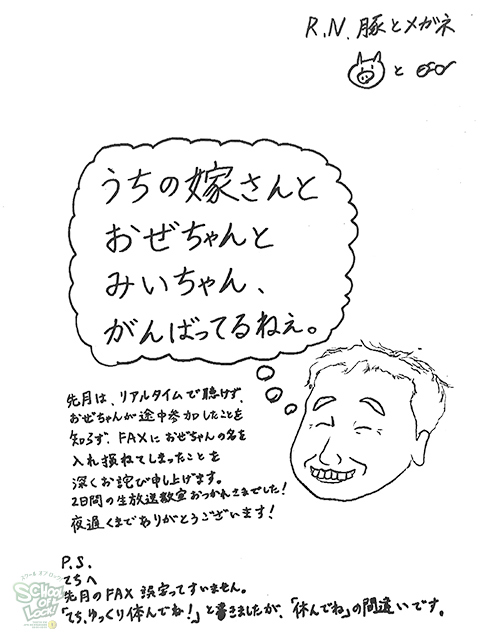 R.N.豚とメガネ
と
うちの嫁さんと
おぜちゃんと
みいちゃん、
がんばってるねぇ。
先月は、リアルタイムで聴けず、
おぜちゃんが途中参加したことを
知らず、FAXにおぜちゃんの名を
入れ損ねてしまったことを
深くお詫び申し上げます。
2日間の生放送教室おつかれさまでした!
夜遅くまでありがとうございます!
P.S.
てちへ
先月のFAX 誤字ってすいません。
「てち、ゆっくり体んでね!」と書きましたが、「休んでね」の間違いです。
スクール オブ ロック!
SCHOOL OF LOCK!